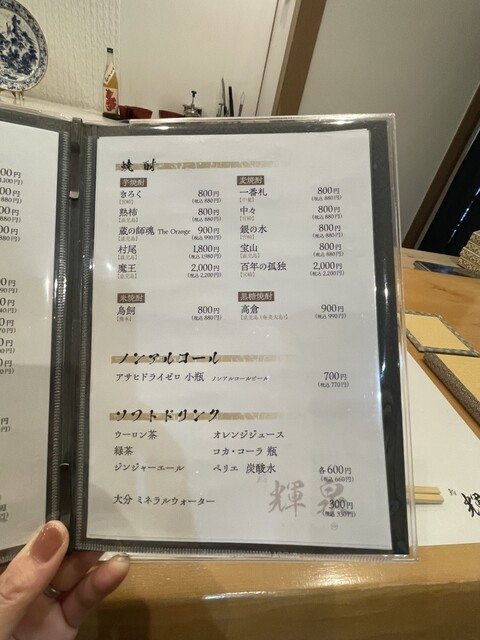 焼酎
芋焼酎
きろく 800円
[宮崎] (税込 880円)
熟柿 800円
[鹿児島] (税込 880円)
蔵の師魂 The Orange 900円
[鹿児島] (税込 990円)
村尾 1,800円
[鹿児島] (税込 1,980円)
魔王 2,000円
[鹿児島] (税込 2,200円)
麦焼酎
一番札 800円
[千葉] (税込 880円)
中々 800円
[宮崎] (税込 880円)
銀の水 800円
[宮崎] (税込 880円)
宝山 800円
[鹿児島] (税込 880円)
百年の孤独 2,000円
[宮崎] (税込 2,200円)
米焼酎
鳥飼 800円
[熊本] (税込 880円)
黒糖焼酎
高倉 900円
[鹿児島(奄美大島)] (税込 990円)
ノンアルコール
アサヒドライゼロ 小瓶 ノンアルコールビール 700円
(税込 770円)
ソフトドリンク
ウーロン茶 オレンジジュース
緑茶 コカ・コーラ 瓶
ジンジャーエール ペリエ 炭酸水 各600円
(税込 660円)
大分 ミネラルウォーター 300円
(税込 330円)
輝泉